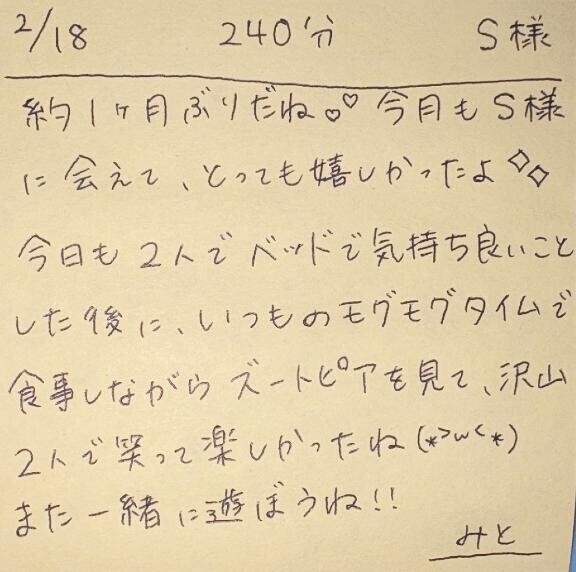 2/18 240分 S様
約1ヶ月ぶりだね♡♡ 今月もS様
に会えて、とっても嬉しかったよ✧✧
今日も2人でベッドで気持ち良いこと
した後に、いつものモグモグタイムで
食事しながらズートピアを見て、沢山
2人で笑って楽しかったね(*>ω<*)
また一緒に遊ぼうね!!
みと